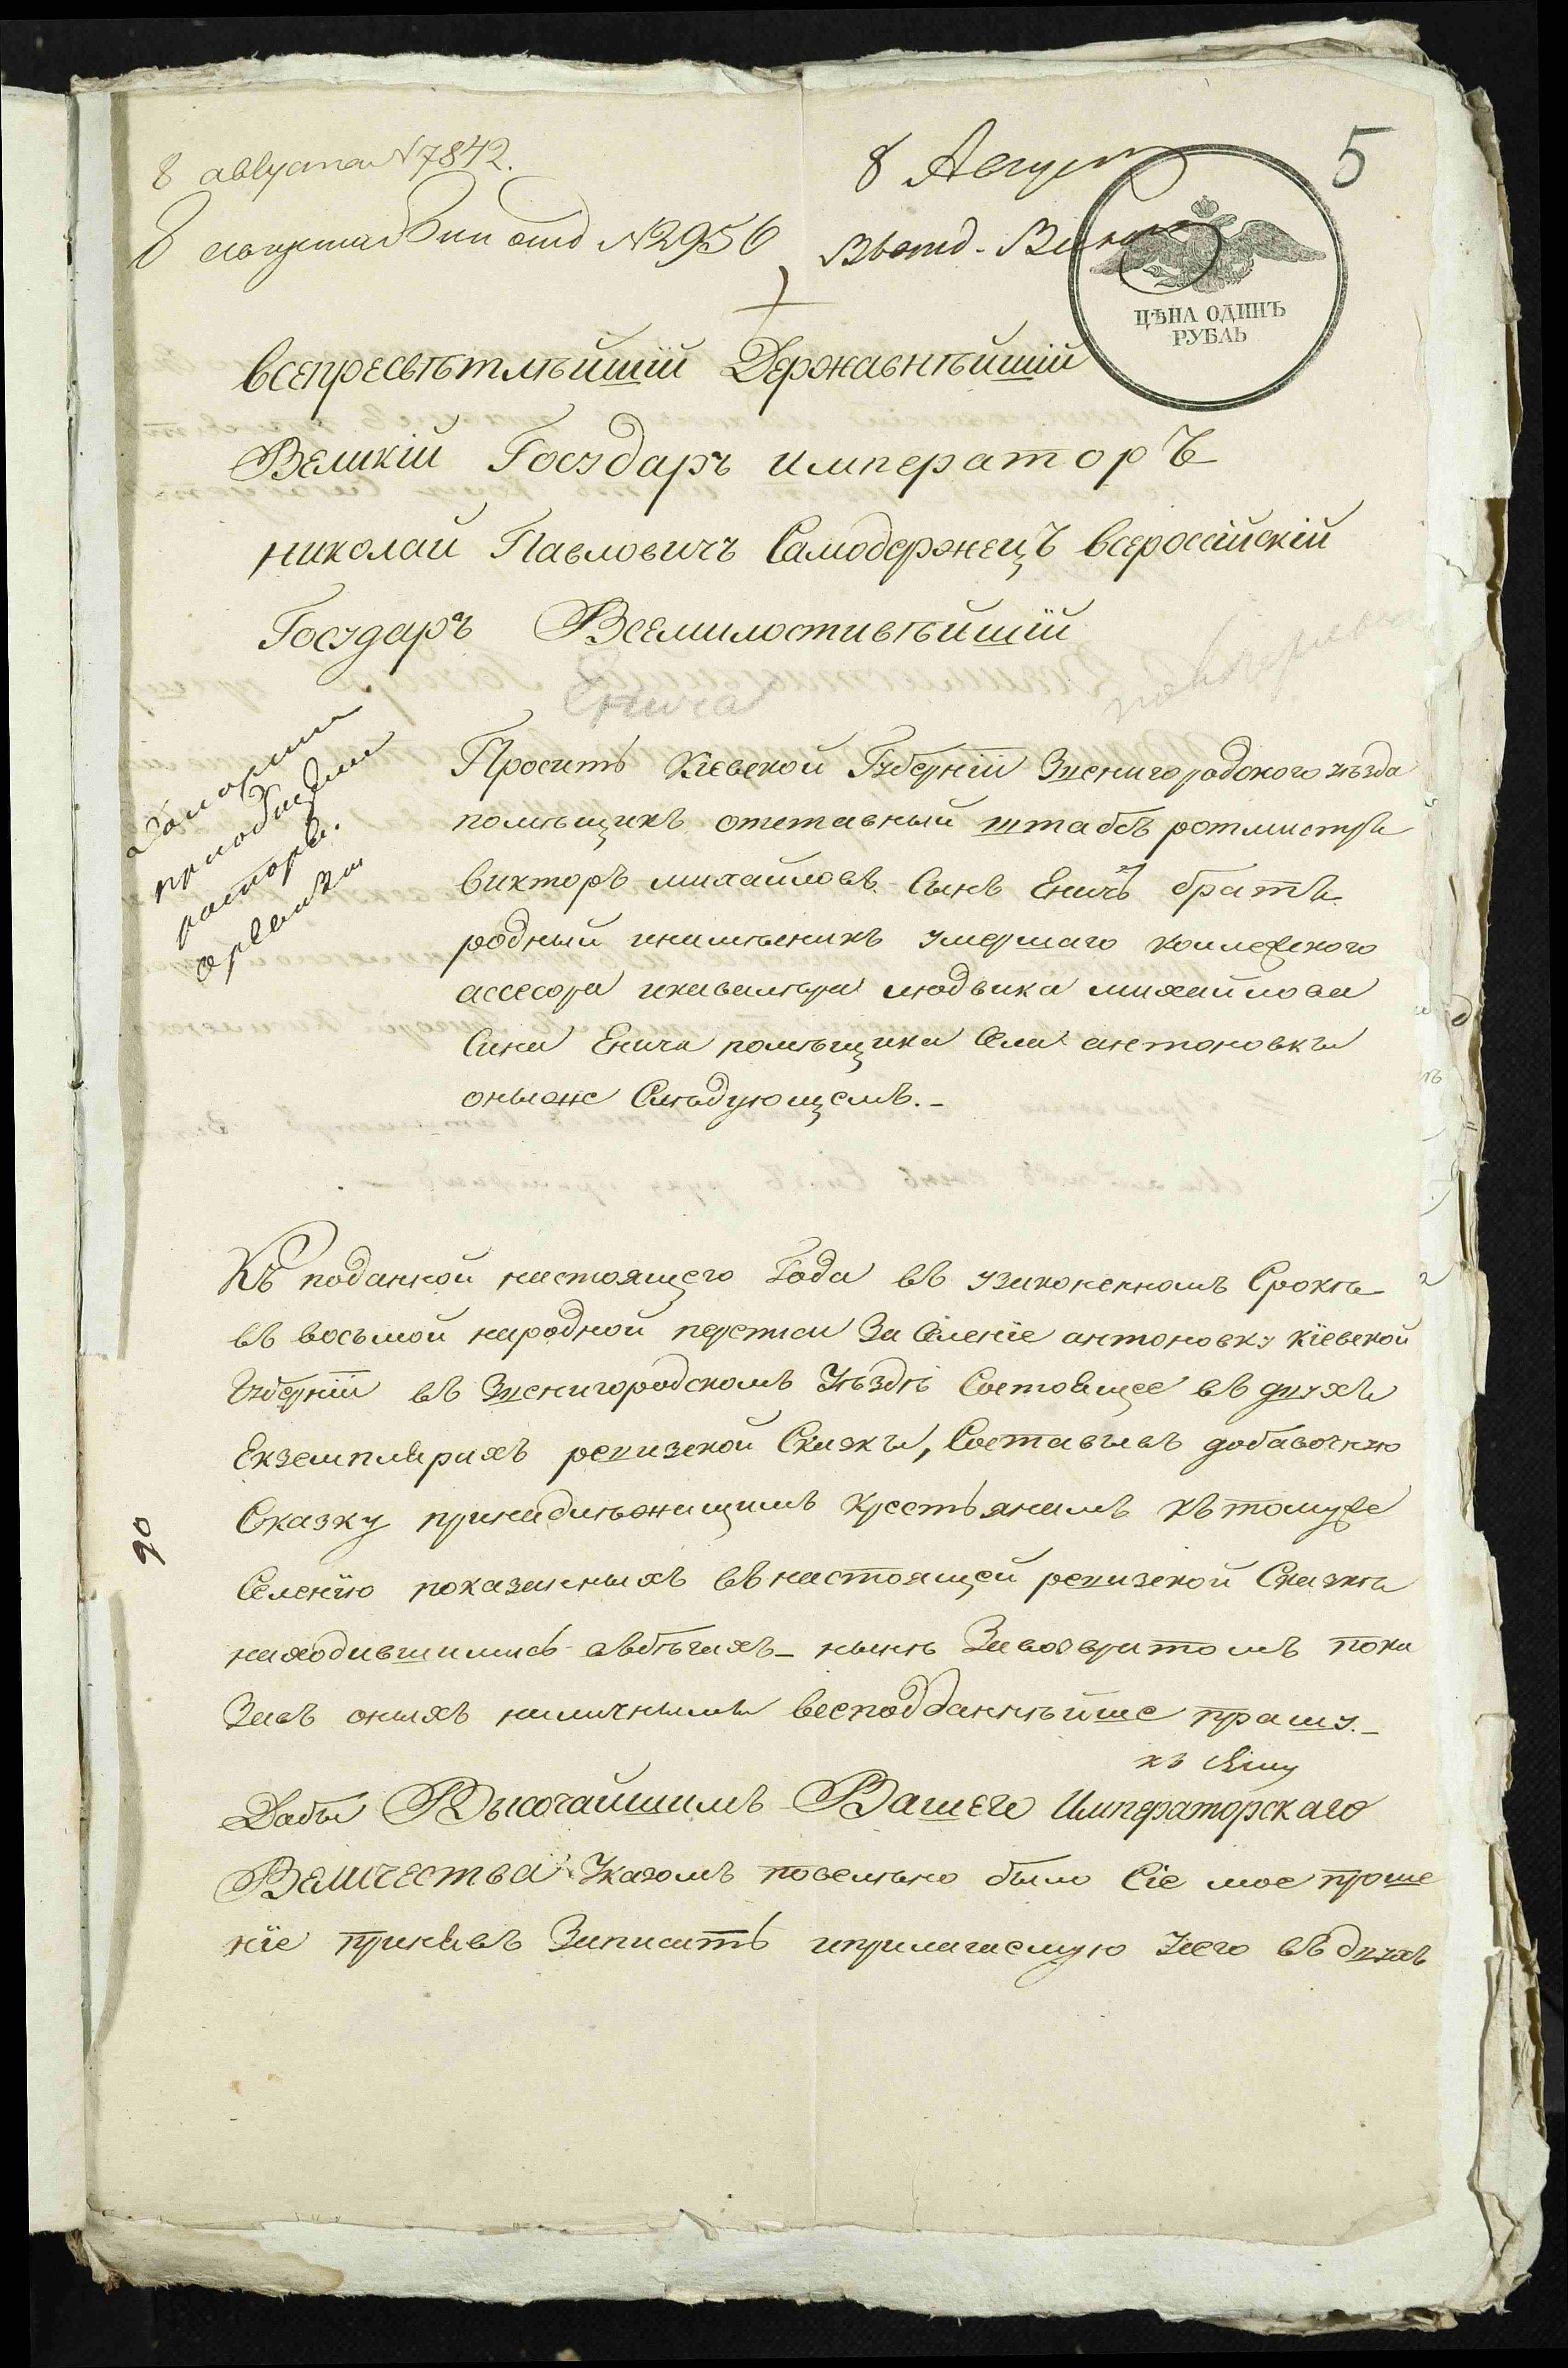 8 августа N 7842.
8 августа отд N 2956
8 Август
5
ЦѢНА ОДИНЪ
РУБЛЬ
Всепресвѣтлѣйшій Державнѣйшій
Великій Государь императоръ
николай Павловичъ Самодержецъ всероссійскій
Государь Всемилостивѣйшій
Енича
Проситъ Кіевской Губерніи Звенигородского уѣзда
помѣщикъ отставный штабсъ ротмистръ
викторъ михайловъ Сынъ Еничъ братъ
родный инаслѣникъ умершаго коллежского
ассесора икавалера людвика михайлова
Сына Енича помѣщика Села антоновки
онижеслѣдующемъ.-
Къ поданной настоящего Года въ узаконенномъ Срокѣ
въ восьмой народной переписи За Селеніе антоновку кіевской
Губерніи въ Звенигородскомъ Уѣздѣ Состоящее въ двухъ
Екземплярахъ ревизской Сказки, Составивъ добавочную
Сказку принадлѣжащимъ крестьянамъ кътомуже
Селенію показаннымъ въ настоящей ревизской Сказкѣ
находившимись въбѣгахъ - нынѣ Завозвратомъ пока
Завъ оныхъ наличными всеподданнѣйше прашу.-
къ сему
Дабы Высочайшимъ Вашего Императорскаго
Величества Указомъ повелѣно было Сіе мое проше
ніе принявъ Записать иприлагаемую унего въ двухъ
90